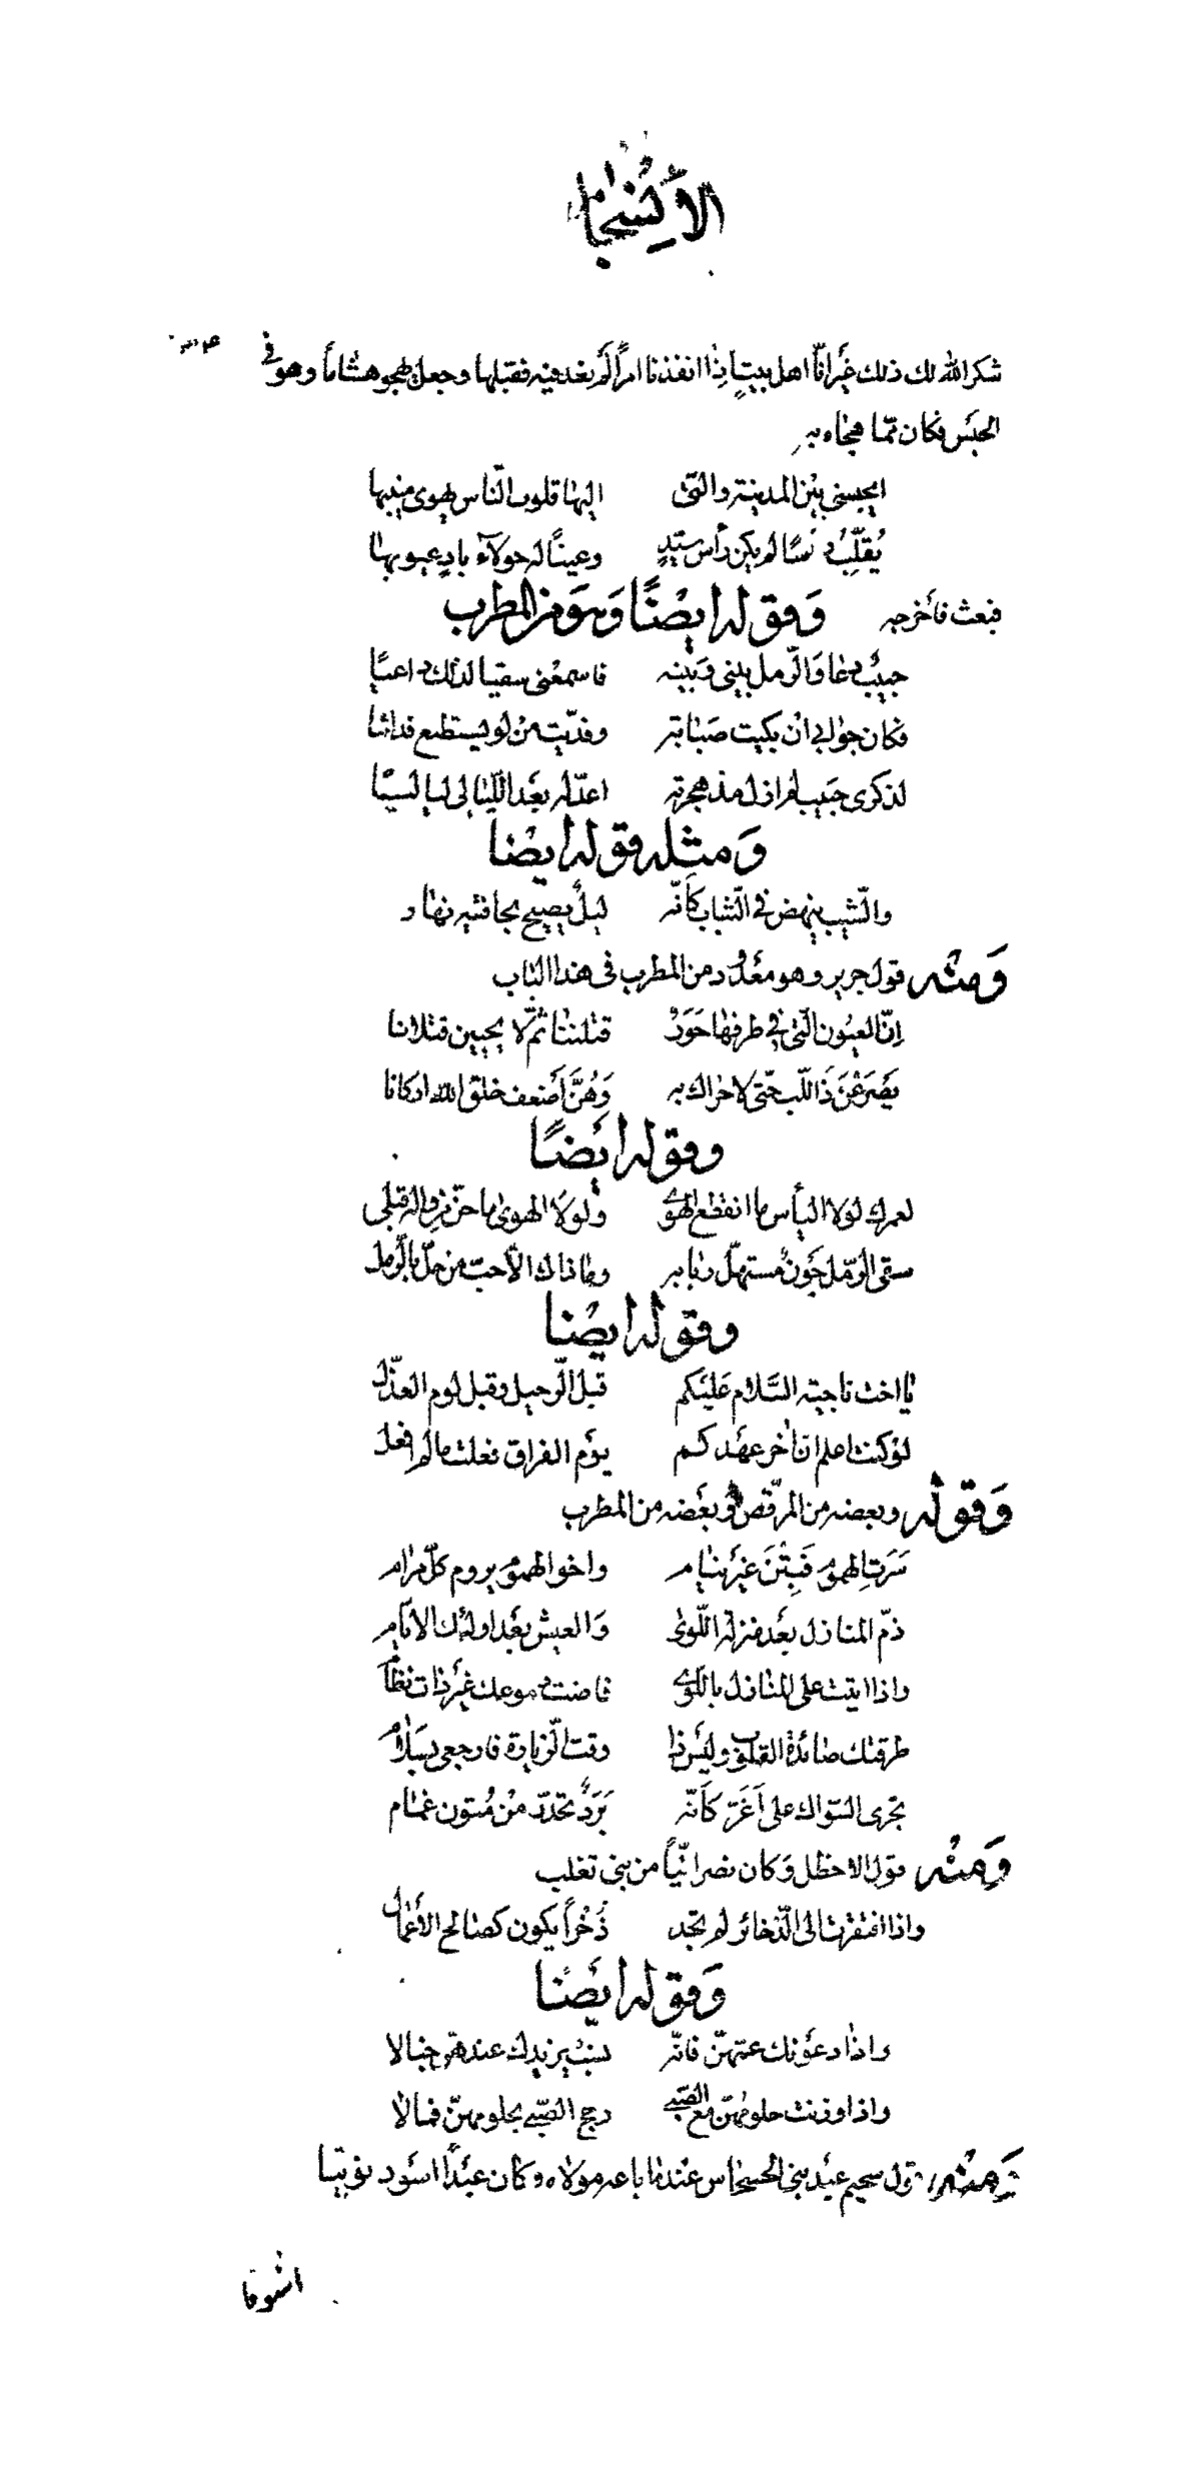 الأنسجام
شكر الله لك ذلك غَيْر انّا اهل بيتٍ اِذا انفذنا امرًا لم نعد فيه فقبلها وجعل يهجو هشاما وهو في
الحبْس فكان ممّا هجاه به
ايحبسنى بيْن المدينة والتى    اليها قلوب النّاس يهوى منيبها
يُقلِّبُ رأسًا لم يكن رأس سيّدٍ    وعينًا له حولآء بادٍ عيوبها
فبعث فأخرجه وَقوله ايضًا وَهوَ من المطرب
حبيبٌ دعا وَالرّمل بينى وَبينه    فاسمعْنى سقيا لذلك داعيًا
فكان جوابى انْ بكيت صَبابة    وفدّيت منْ لو يستطيع فدانيا
لذكرى حَبيب لم ازل مذ هجرته    اعدّ له بعْد اللّيالى لياليًا
وَمثله قوله ايضا
والشّيب ينهض فى الشّباب كأنّه    ليلٌ يصيح بجانبيه نهار
وَمنْه قول جرير وهو معْدُود من المطرب فى هذا الباب
اِنّ العيُون الّتى فى طرفها حَوَرٌ    قتلننا ثمّ لا يحيين قتلانا
يَصْرَعْنَ ذَا اللّب حتّى لا حراك به    وَهُنَّ أَضعف خلق الله اركانا
وقوله ايْضًا
لعمرك لولا اليأس ما انقطع الهوى    ولولَا الهوى ما حنّ من واله قبلى
سقى الرّمل جَوْنٌ مستهلّ ربابه    وما ذاك الّا حبّ من حلّ بالرّمل
وقوله ايضْا
يا اخت ناجية السَّلام عَليْكم    قبْل الرّحيل وقبل لوم العذّل
لوْ كنت اعلم انّ اخر عهْدكم    يوْم الفراق فعلت ما لم افعل
وَقوله وبعضه من المرّقص وبعْضه من المطرب
سَرَتِ الهموُم فَبِتْنَ غيْر نيام    واخو الهموم يروم كلّ مرام
ذمّ المنازل بعْد منزلة اللّوى    وَالعيش بعْد اولئك الايّام
واذا اتيت على المنازل باللّوى    فاضت دموعك غيْر ذات نظام
طرقتك صائدة القلوب وليْس ذا    وقت الزّيارة فارجعى بسَلام
تجرى السّواك على اَغَرّ كَأنّه    بَرَدٌ تحدّر منْ مُتون غمام
وَمِنْه قول الاخطل وَكان نصرانيّاً من بنى تغلب
واذا افتقرت الى الذّخائر لم تجد    ذُخْراً يكون كصالح الأعْمال
وَقوله ايْضًا
واذا دعوْنك عمّهنّ فانّه    نسبٌ يزيدك عندهنّ خبالا
واذا وزنت حلومهنّ مع الصّبى    رجح الصّبى بحلومهنّ فمالا
وَمنْه قول سحيم عبْد بنى الحسْحاس عنْدما باعه مولاه وكان عبْدًا اسْود نوبيّا
اشوقا